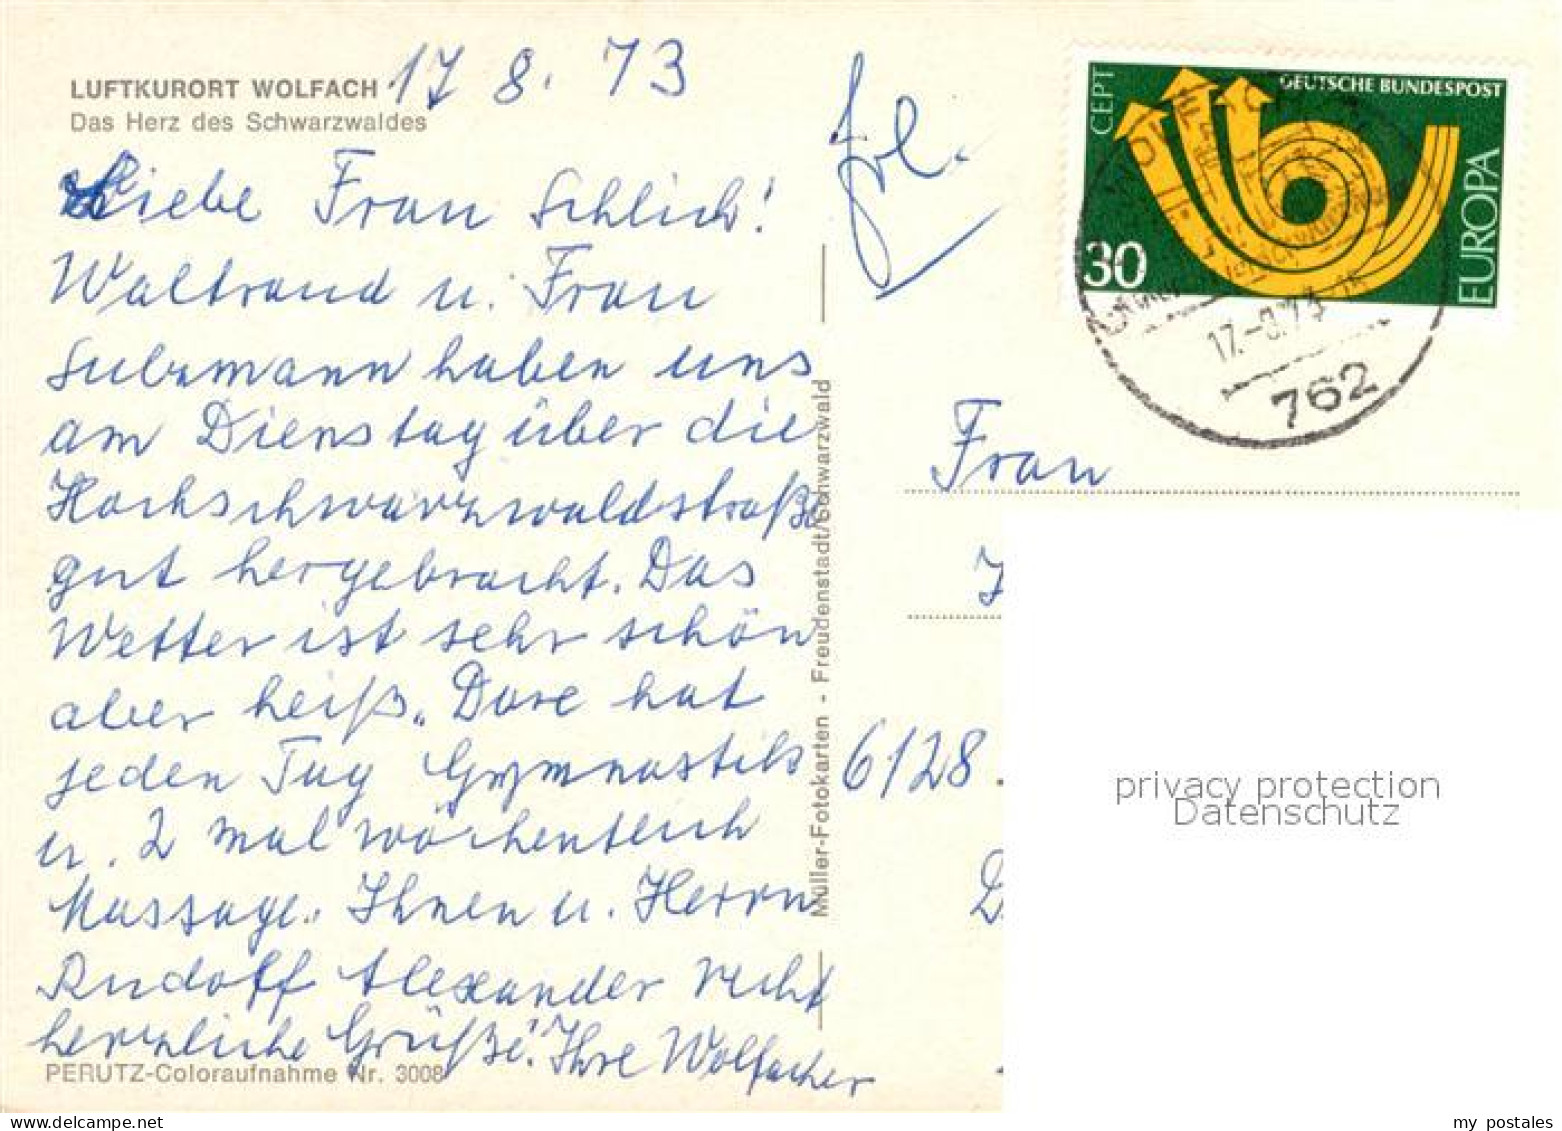 LUFTKURORT WOLFACH
Das Herz des Schwarzwaldes
17 8. 73
Liebe Frau Schlich!
Waltraud u. Frau
Sulzmann haben uns
am Dienstag über die
Hochschwarzwaldstraße
gut hergebracht. Das
Wetter ist sehr schön
aber heiß. Dore hat
jeden Tag Gymnastik
u. 2 mal wöchentlich
Massage. Ihnen u. Herrn
Rudolf Alexander recht
herzliche Grüße! Ihre Wolfacher
PERUTZ-Coloraufnahme Nr. 3008
Müller-Fotokarten - Freudenstadt/Schwarzwald
CEPT
DEUTSCHE BUNDESPOST
30
EUROPA
17.-8.73
762
Frau
6128
privacy protection
Datenschutz
my postales